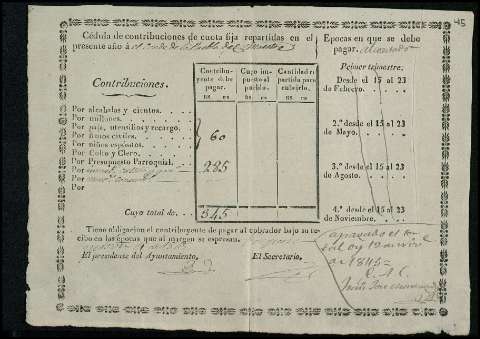 45
Cédula de contribuciones de cuota fija repartidas en el
presente año á
Contribuciones.
Contribu-
yente debe
pagar.
Cupo im-
puesto al
pueblo.
Cantidad re-
partida para
cubrirlo.
Rs. Rs. Rs.
Por alcabalas y cientos.
Por millones.
Por paja, utensilios y recargo.
Por frutos civiles.
Por niños espósitos.
Por Culto y Clero.
60
Por Presupuesto Parroquial.
285
Por
Por
Por
Cuyo total de.
345
Tiene obligacion el contribuyente de pagar al cobrador bajo su re-
cibo en las épocas que al márgen se espresan.
El presidente del Ayuntamiento,
El Secretario,
Epocas en que se debe
pagar.
Primer trimestre.
Desde el 15 al 23
de Febrero.
2.º desde el 15 al 23
de Mayo.
3.º desde el 15 al 23
de Agosto.
4.º desde el 15 al 23
de Noviembre.
a pagado el to
tal oy 12
de 1845